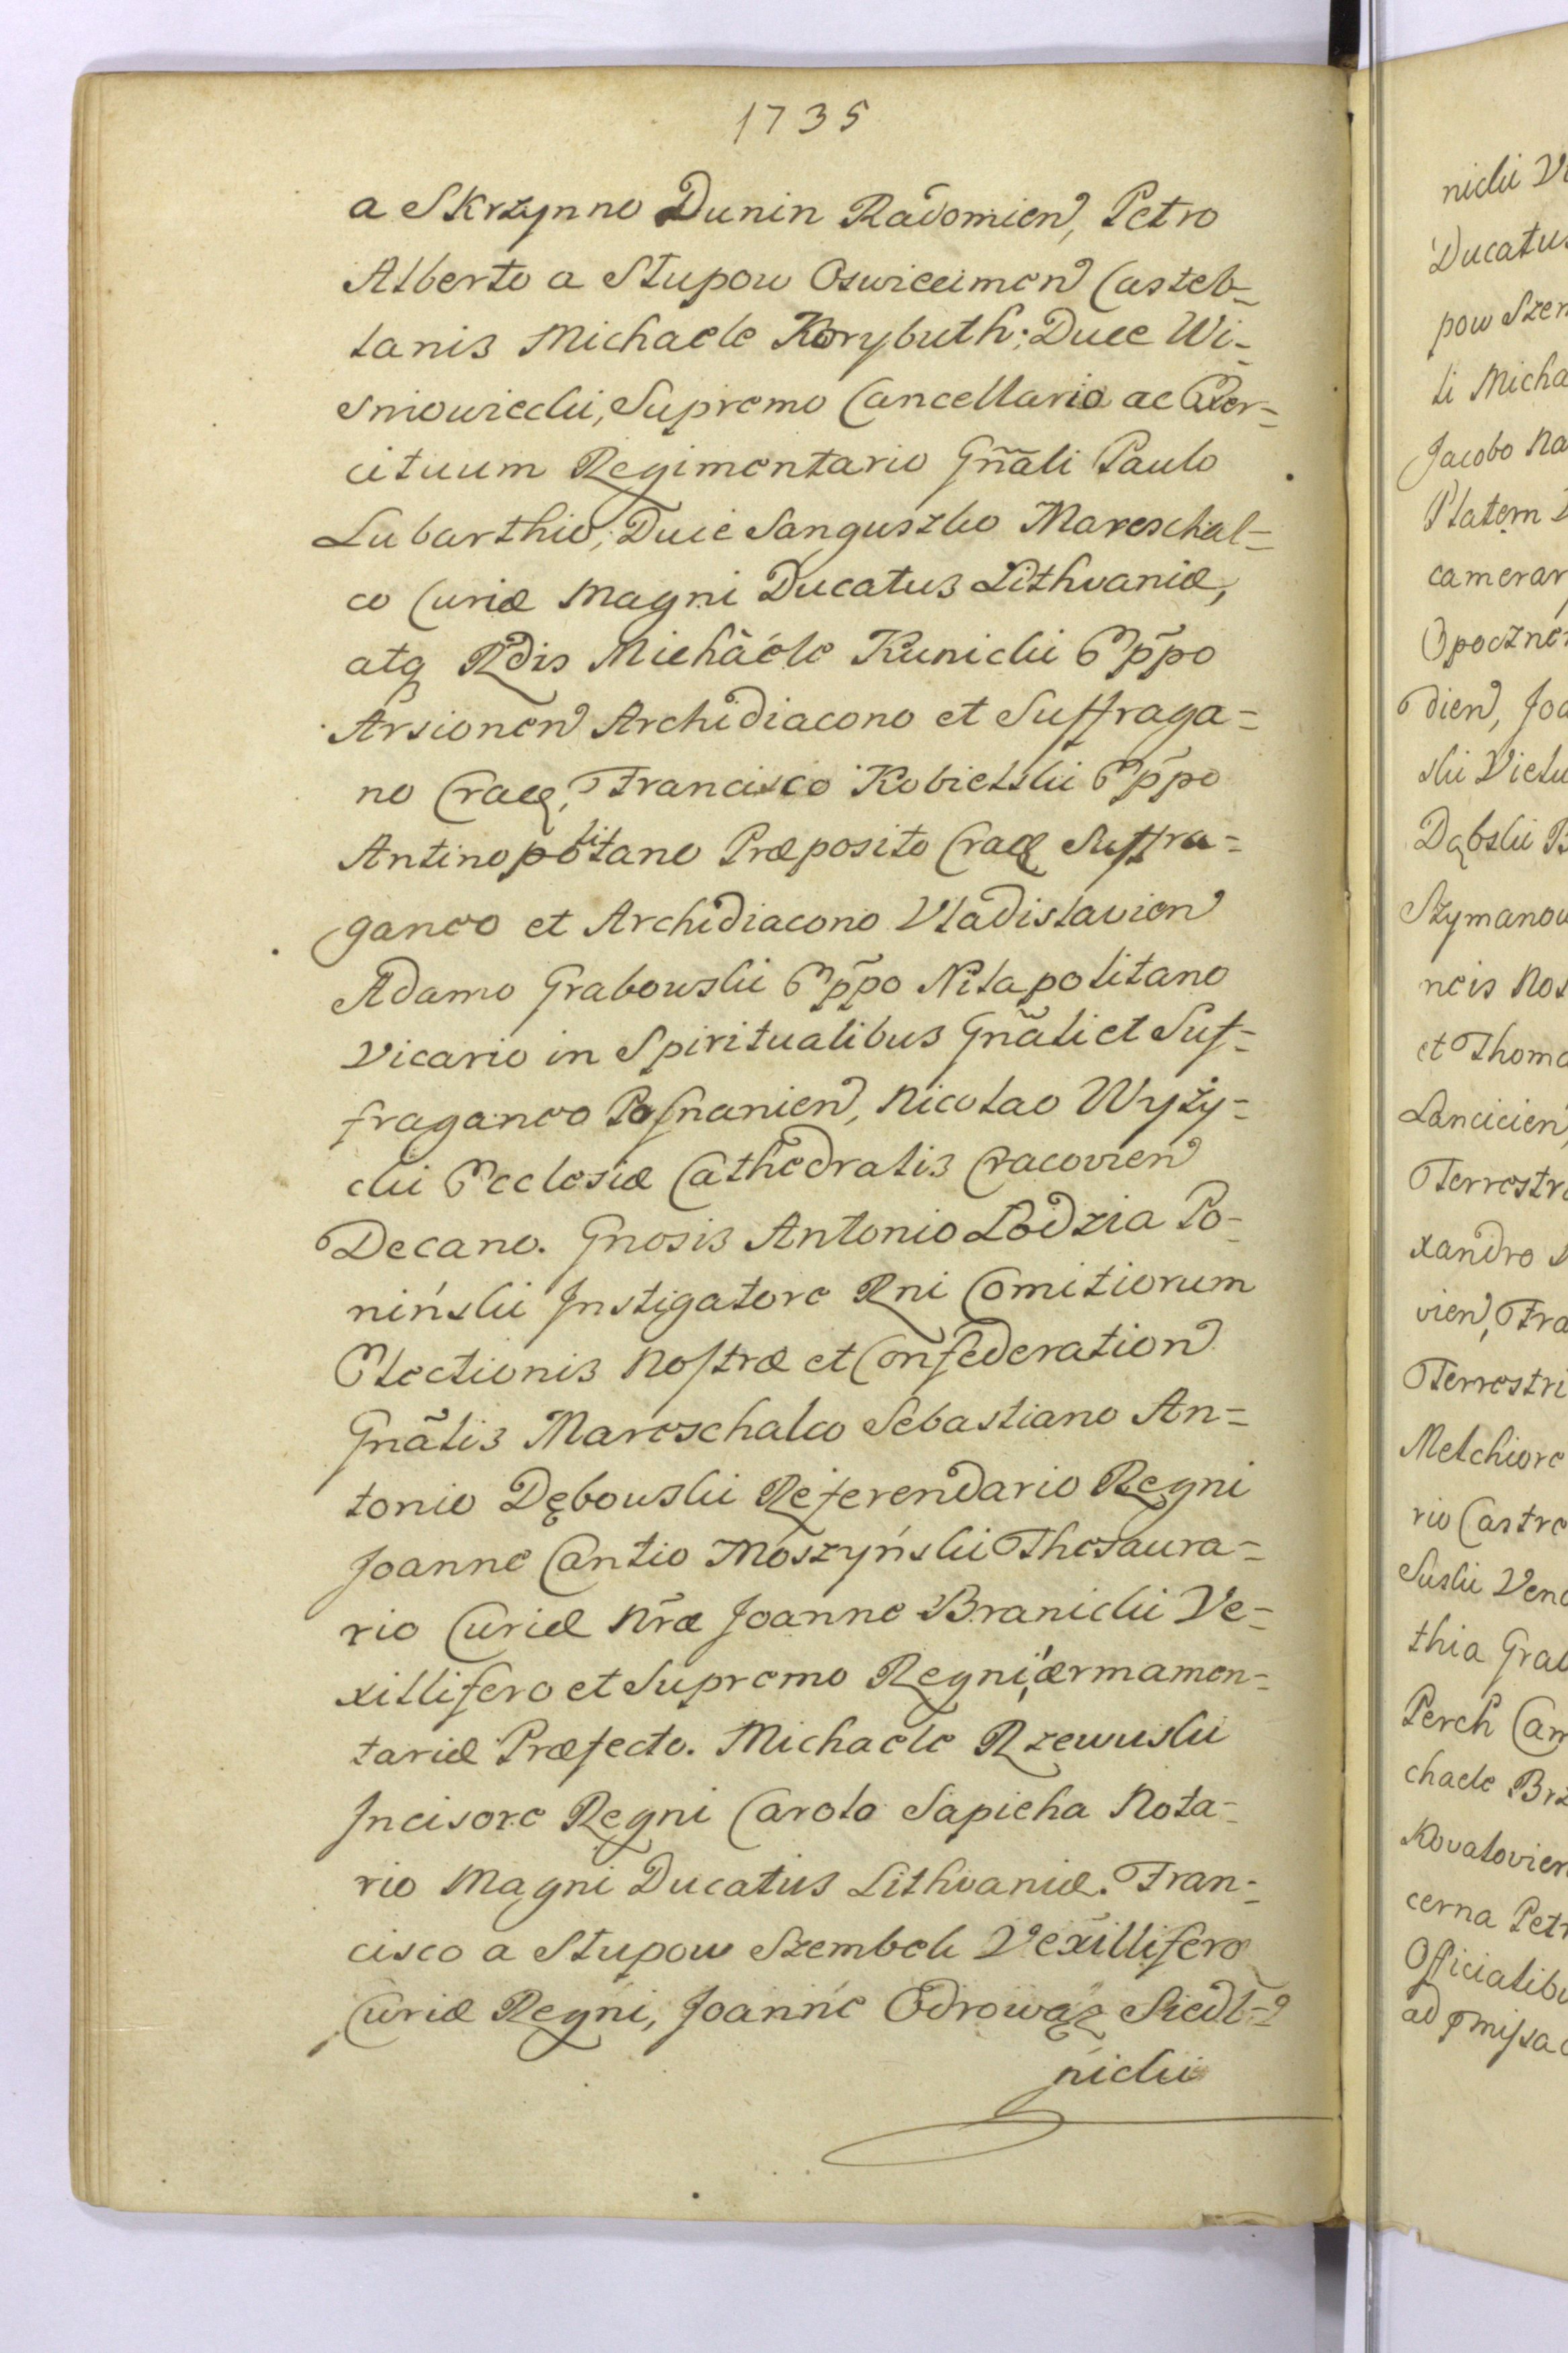 1735
a Skrzynno Dunin Radomien, Petro
Alberto a Słupow Oswiecimen Castel=
lanis Michaele Korybuth; Duce Wi=
sniowiecki, Supremo Cancellario ac Exer=
cituum Regimentario Gñali Paulo
Lubarthio, Duce Sanguszko Mareschal=
co Curiæ Magni Ducatus Lithvaniæ,
atq Rdis Michaele Kunicki Eppo
Arsionen Archidiacono et Suffraga=
no Crac, Francisco Kobielski Eppo
Antinopolitano Præposito Crac Suffra=
ganeo et Archidiacono Vladislavien
Adamo Grabowski Eppo Nilapolitano
Vicario in Spiritualibus Gñali et Suf=
fraganeo Posnanien, Nicolao Wyży=
cki Ecclesiæ Cathedralis Cracovien
Decano. Gnosis Antonio Lodzia Po=
niński Instigatore Rni Comitiorum
Electionis Nostræ et Confederation
Gnãlis Mareschalco Sebastiano An=
tonio Dębowski Referendario Regni
Joanne Cantio Moszyński Thesaura=
rio Curiæ Nræ Joanne Branicki Ve=
xillifero et Supremo Regni, armamen=
tariæ Præfecto. Michaele Rzewuski
Incisore Regni Carolo Sapieha Nota=
rio Magni Ducatus Lithvaniæ. Fran=
cisco a Słupow Szembek Vexillifero
Curiæ Regni, Joanne Odrowąz Siedl=
nicki
nicki
Ducatus
pow Szem
li Micha
Jacobo Na
Platem
camerar
Opocznen
dien, Joa
ski Vielu
Dąbski B
Szymanow
neis Nos
et Thoma
Lancicien,
Terrestr
xandro
vien, Fra
Terrestri
Melchiore
rio Castre
Suski Vend
thia Grab
Perch Cam
chaele Brz
Kovalovien
cerna Petr
Officialibu
ad pmissa